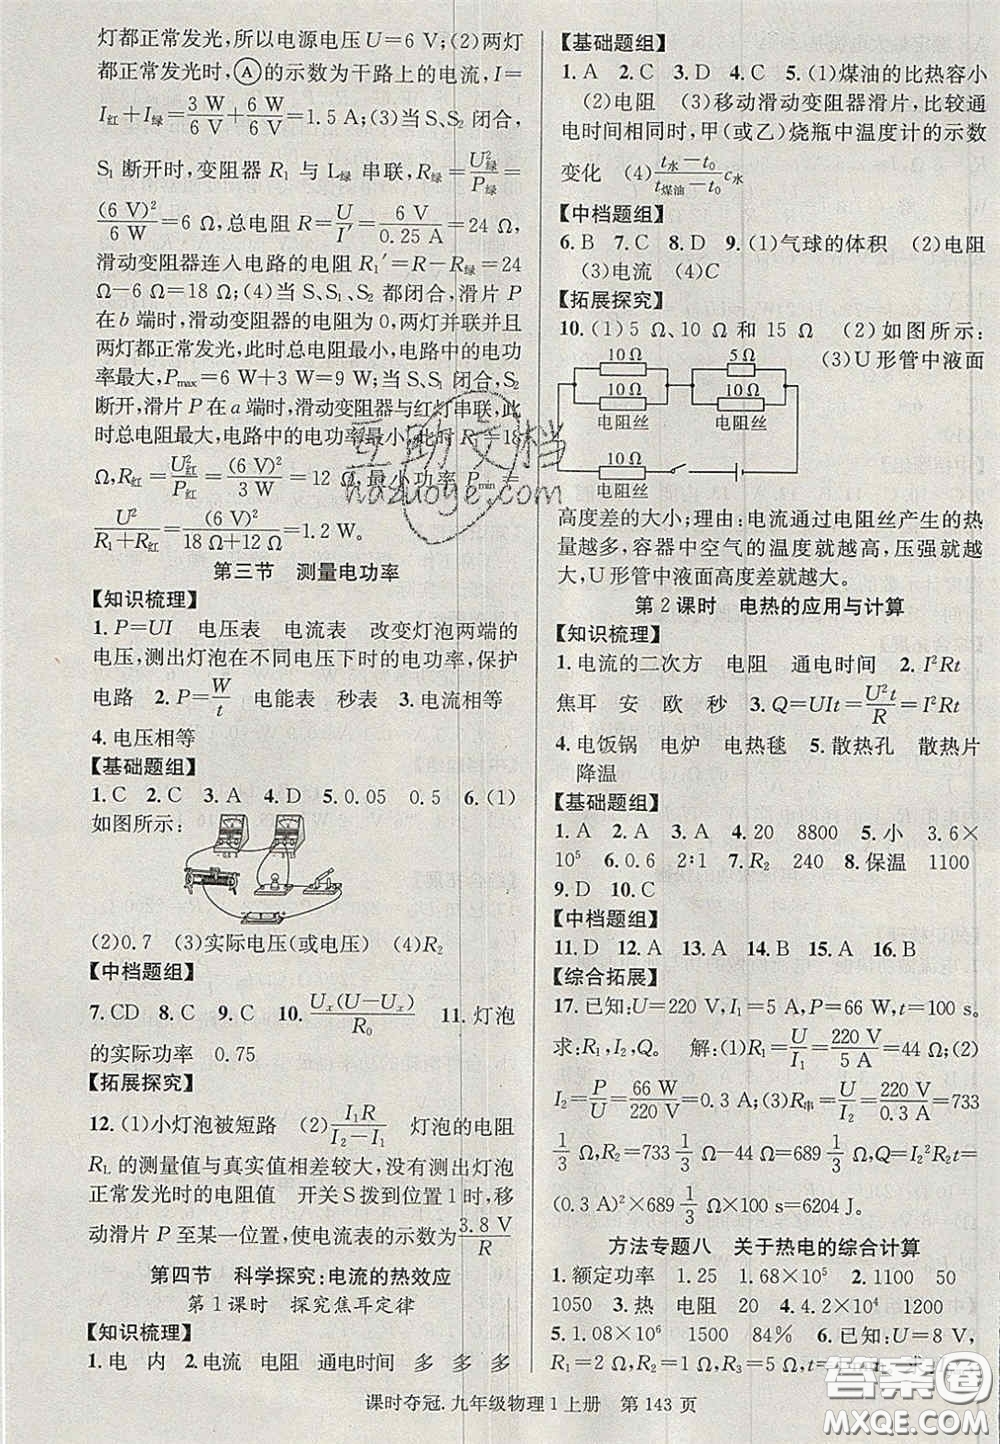 灯都正常发光,所以电源电压U=6 V;(2)两灯
都正常发光时,Ⓐ的示数为干路上的电流,I=
I红+I绿=3 W/6 V+6 W/6 V=1.5 A;(3)当S、S₂闭合,
S₁断开时,变阻器R₁与L绿串联,R绿=U²绿/P绿
=(6 V)²/6 W=6 Ω,总电阻R=U/I′=6 V/0.25 A=24 Ω,
滑动变阻器连入电路的电阻R₁′=R-R绿=24
Ω-6 Ω=18 Ω;(4)当S、S₁、S₂都闭合,滑片P
在b端时,滑动变阻器的电阻为0,两灯并联并且
两灯都正常发光,此时总电阻最小,电路中的电功
率最大,Pmax=6 W+3 W=9 W;当S、S₁闭合,S₂
断开,滑片P在a端时,滑动变阻器与红灯串联,此
时总电阻最大,电路中的电功率最小,此时R₁=18
Ω,R红=U²红/P红=(6 V)²/3 W=12 Ω,最小功率Pmin=
U²/(R₁+R红)=(6 V)²/(18 Ω+12 Ω)=1.2 W。
第三节 测量电功率
【知识梳理】
1.P=UI 电压表 电流表 改变灯泡两端的
电压,测出灯泡在不同电压下时的电功率,保护
电路 2.P=W/t 电能表 秒表 3.电流相等
4.电压相等
【基础题组】
1.C 2.C 3.A 4.D 5.0.05 0.5 6.(1)
如图所示:
(2)0.7 (3)实际电压(或电压) (4)R₂
【中档题组】
7.CD 8.C 9.C 10.Uₓ(U-Uₓ)/R₀ 11.灯泡
的实际功率 0.75
【拓展探究】
12.(1)小灯泡被短路 (2)I₁R/(I₂-I₁) 灯泡的电阻
RL的测量值与真实值相差较大,没有测出灯泡
正常发光时的电阻值 开关S拨到位置1时,移
动滑片P至某一位置,使电流表的示数为3.8 V/R
第四节 科学探究:电流的热效应
第1课时 探究焦耳定律
【知识梳理】
1.电 内 2.电流 电阻 通电时间 多 多 多
【基础题组】
1.A 2.C 3.D 4.C 5.(1)煤油的比热容小
(2)电阻 (3)移动滑动变阻器滑片,比较通
电时间相同时,甲(或乙)烧瓶中温度计的示数
变化 (4)(t水-t₀)/(t煤油-t₀)c水
【中档题组】
6.B 7.C 8.D 9.(1)气球的体积 (2)电阻
(3)电流 (4)C
【拓展探究】
10.(1)5 Ω、10 Ω和15 Ω (2)如图所示:
(3)U形管中液面
10 Ω 5 Ω
10 Ω 10 Ω
电阻丝 电阻丝
10 Ω
电阻丝
高度差的大小;理由:电流通过电阻丝产生的热
量越多,容器中空气的温度就越高,压强就越
大,U形管中液面高度差就越大。
第2课时 电热的应用与计算
【知识梳理】
1.电流的二次方 电阻 通电时间 2.I²Rt
焦耳 安 欧 秒 3.Q=UIt=U²t/R=I²Rt
4.电饭锅 电炉 电热毯 5.散热孔 散热片
降温
【基础题组】
1.A 2.A 3.A 4.20 8800 5.小 3.6×
10⁵ 6.0.6 2:1 7.R₂ 240 8.保温 1100
9.D 10.C
【中档题组】
11.D 12.A 13.A 14.B 15.A 16.B
【综合拓展】
17.已知:U=220 V,I₁=5 A,P=66 W,t=100 s。
求:R₁,I₂,Q。 解:(1)R₁=U/I₁=220 V/5 A=44 Ω;(2)
I₂=P/U=66 W/220 V=0.3 A;(3)R串=U/I₂=220 V/0.3 A=733
1/3 Ω,R₂=733 1/3 Ω-44 Ω=689 1/3 Ω,Q=I₂²R₂t=
(0.3 A)²×689 1/3 Ω×100 s=6204 J。
方法专题八 关于热电的综合计算
1.额定功率 1.25 1.68×10⁵ 2.1100 50
1050 3.热 电阻 20 4.4.2×10⁴ 1200
5.1.08×10⁶ 1500 84% 6.已知:U=8 V,
R₁=2 Ω,R₂=
课时夺冠.九年级物理1上册 第143页
互助文档
hazuoye.com
答案圈
MXQE.COM